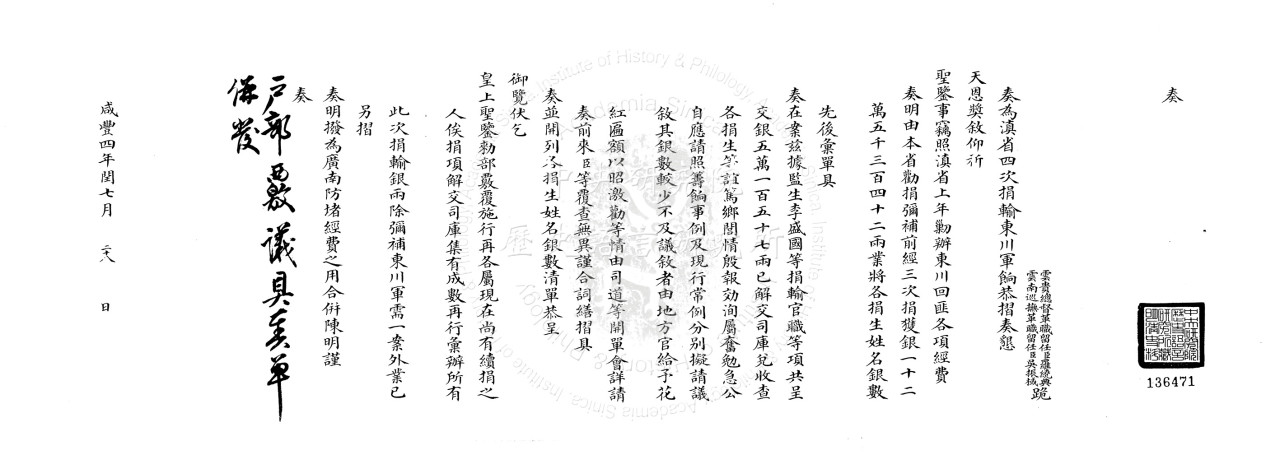 奏
雲貴總督革職留任臣羅繞典
雲南巡撫革職留任臣吳振棫 跪
奏為滇省四次捐輸東川軍餉恭摺奏懇
天恩獎敘仰祈
聖鑒事竊照滇省上年勦辦東川回匪各項經費
奏明由本省勸捐彌補前經三次捐獲銀一十二
萬五千三百四十二兩業將各捐生姓名銀數
先後彙單具
奏在案茲據監生李盛國等捐輸官職等項共呈
交銀五萬一百五十七兩已解交司庫兌收查
各捐生等誼篤鄉閭情殷報効洵屬奮勉急公
自應請照籌餉事例及現行常例分別擬請議
敘其銀數較少不及議敘者由地方官給予花
紅匾額以昭激勸等情由司道等開單會詳請
奏前來臣等覆查無異謹合詞繕摺具
奏並開列各捐生姓名銀數清單恭呈
御覽伏乞
皇上聖鑒勅部覈覆施行再各屬現在尚有續捐之
人俟捐項解交司庫集有成數再行彙辦所有
此次捐輸銀兩除彌補東川軍需一案外業已
另摺
奏明撥為廣南防堵經費之用合併陳明謹
奏
戶部覈議具奏單
併發
咸豐四年閏七月 二十八 日
136471